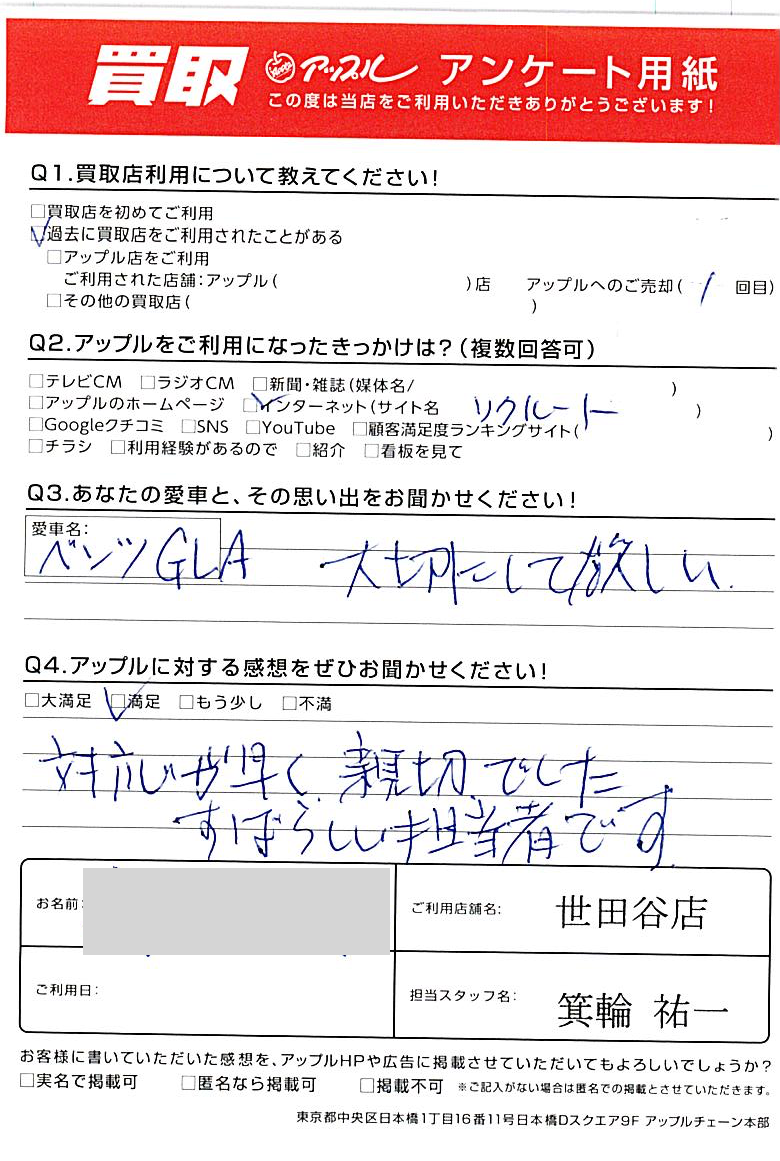 買取 アップル アンケート用紙
この度は当店をご利用いただきありがとうございます!
Q1.買取店利用について教えてください!
□買取店を初めてご利用
☑過去に買取店をご利用されたことがある
□アップル店をご利用
ご利用された店舗:アップル( )店 アップルへのご売却( 1 回目)
□その他の買取店( )
Q2.アップルをご利用になったきっかけは?(複数回答可)
□テレビCM □ラジオCM □新聞・雑誌(媒体名/ )
□アップルのホームページ ☑インターネット(サイト名 リクルート )
□Googleクチコミ □SNS □YouTube □顧客満足度ランキングサイト( )
□チラシ □利用経験があるので □紹介 □看板を見て
Q3.あなたの愛車と、その思い出をお聞かせください!
愛車名:
ベンツGLA 大切にして欲しい.
Q4.アップルに対する感想をぜひお聞かせください!
□大満足 ☑満足 □もう少し □不満
対応が早く、親切でした
すばらしい担当者です
お名前: ご利用店舗名: 世田谷店
ご利用日: 担当スタッフ名: 箕輪 祐一
お客様に書いていただいた感想を、アップルHPや広告に掲載させていただいてもよろしいでしょうか?
□実名で掲載可 □匿名なら掲載可 □掲載不可 ※ご記入がない場合は匿名での掲載とさせていただきます。
東京都中央区日本橋1丁目16番11号日本橋Dスクエア9F アップルチェーン本部